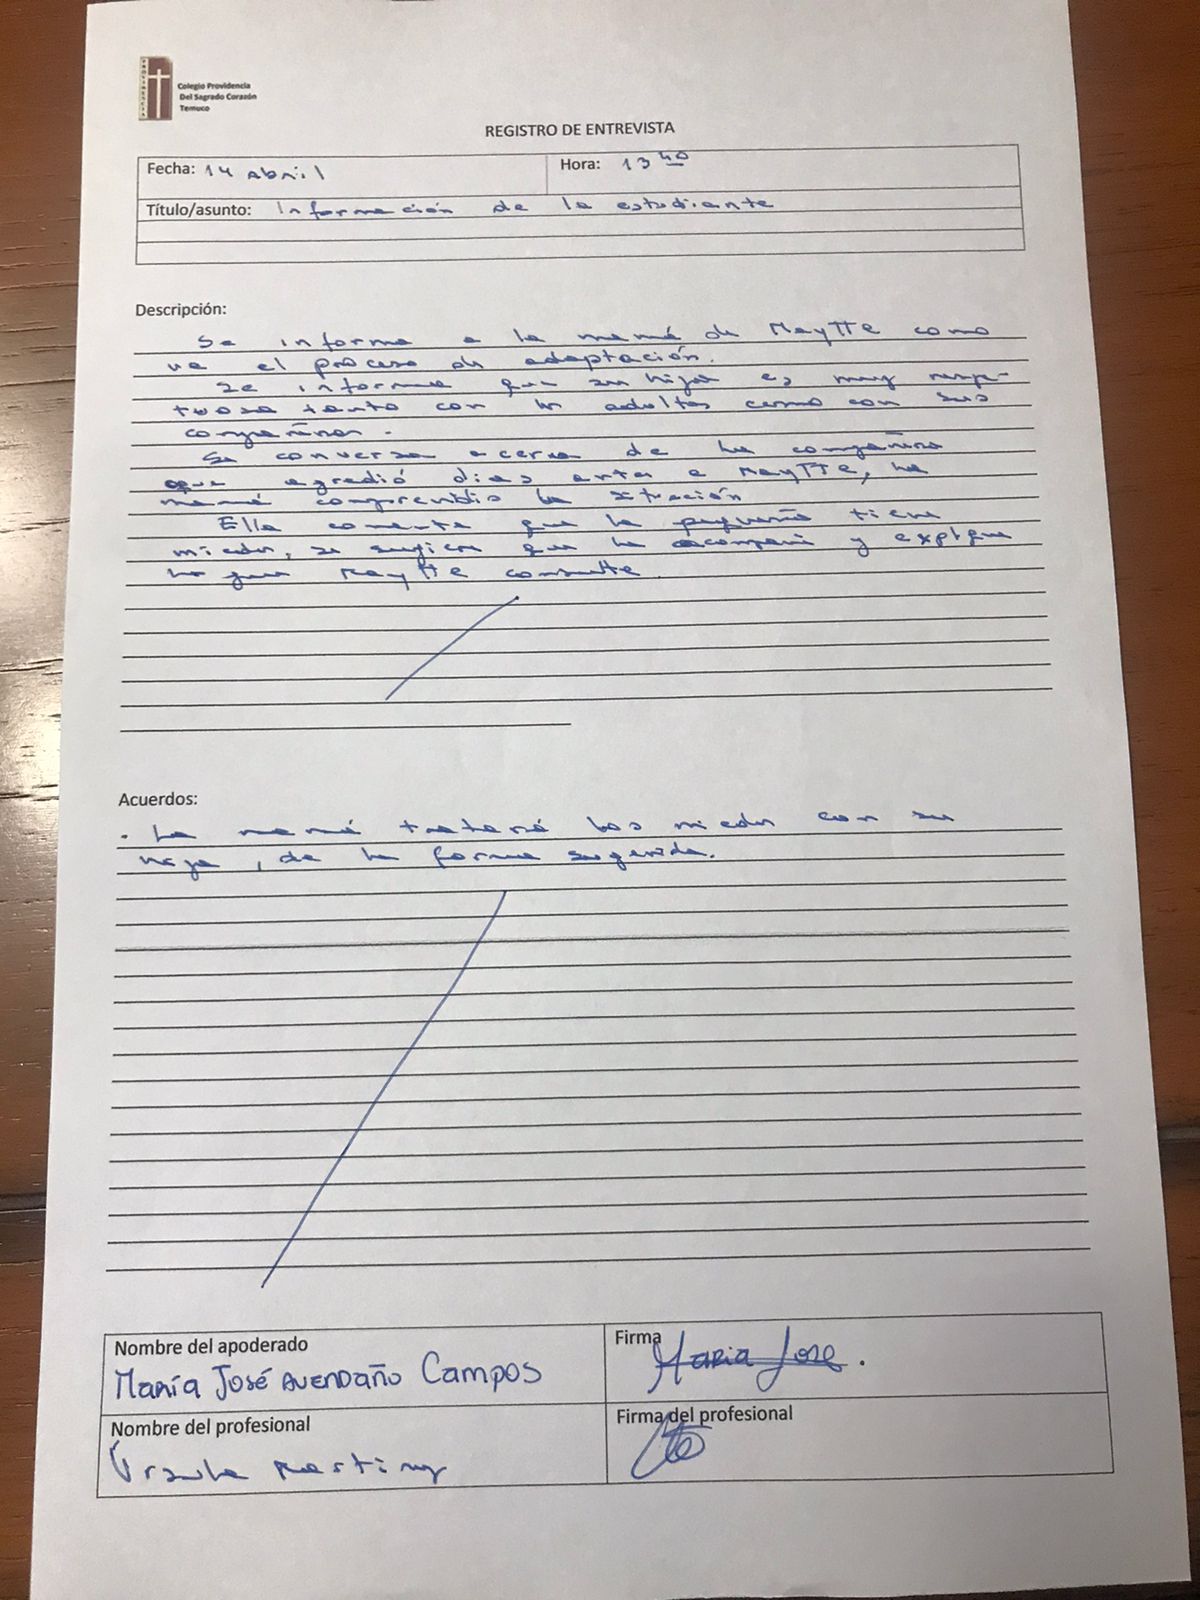 PROVIDENCIA
Colegio Providencia
Del Sagrado Corazón
Temuco
REGISTRO DE ENTREVISTA
Fecha: 14 abril
Hora: 13 40
Título/asunto: Información de la estudiante
Descripción:
Se informa a la mamá de Maytte como
va el proceso de adaptación.
Se informa que su hija es muy respe-
tuosa tanto con los adultos como con sus
compañeros.
Se conversa acerca de la compañera
que agredió días antes a Maytte, la
mamá comprendió la situación
Ella comenta que la pequeña tiene
miedos, se sugiere que la acompañe y explique
lo que Maytte consulte.
Acuerdos:
. La mamá tratará los miedos con su
hija, de la forma sugerida.
Nombre del apoderado
María José Avendaño Campos
Firma
Maria Jose.
Nombre del profesional
Úrsula
Firma del profesional